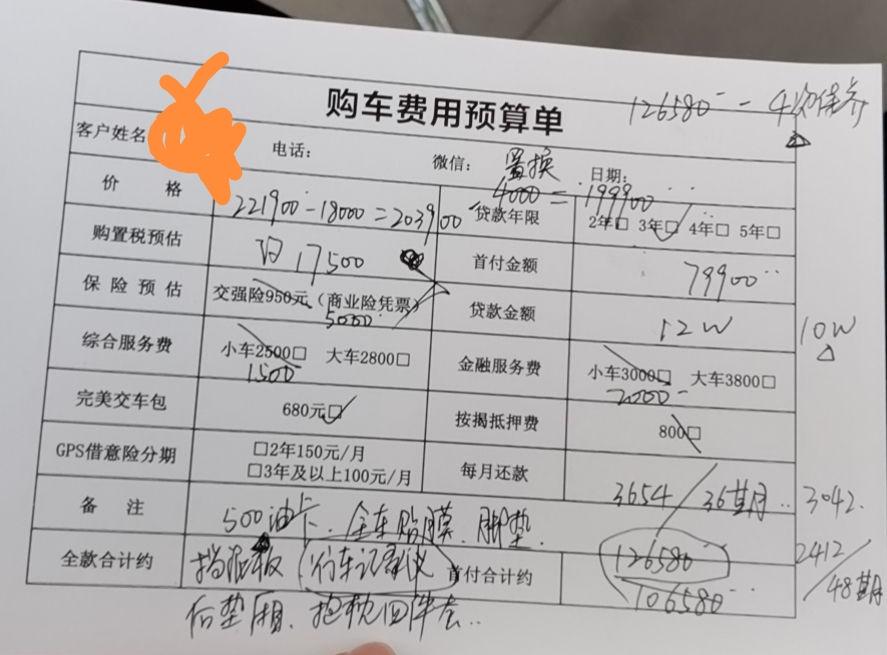 购车费用预算单 126580 - 4次保养
客户姓名 电话: 微信: 置换 日期:
4000 = 199900
价 格 221900-18000=203900 贷款年限 2年□ 3年□ 4年□ 5年□
购置税预估 17500 首付金额 79900
保险预估 交强险950元(商业险凭票) 贷款金额 12W 10W
5000
综合服务费 小车2500□ 大车2800□ 金融服务费 小车3000□ 大车3800□
1500 2000
完美交车包 680元□ 按揭抵押费 800□
GPS借意险分期 □2年150元/月 每月还款 3654/36期 3042
□3年及以上100元/月
备 注 500油卡、全车贴膜、脚垫
全款合计约 挡泥板(行车记录仪) 首付合计约 126580 2412/48期
106580
后垫厢、抱枕四件套